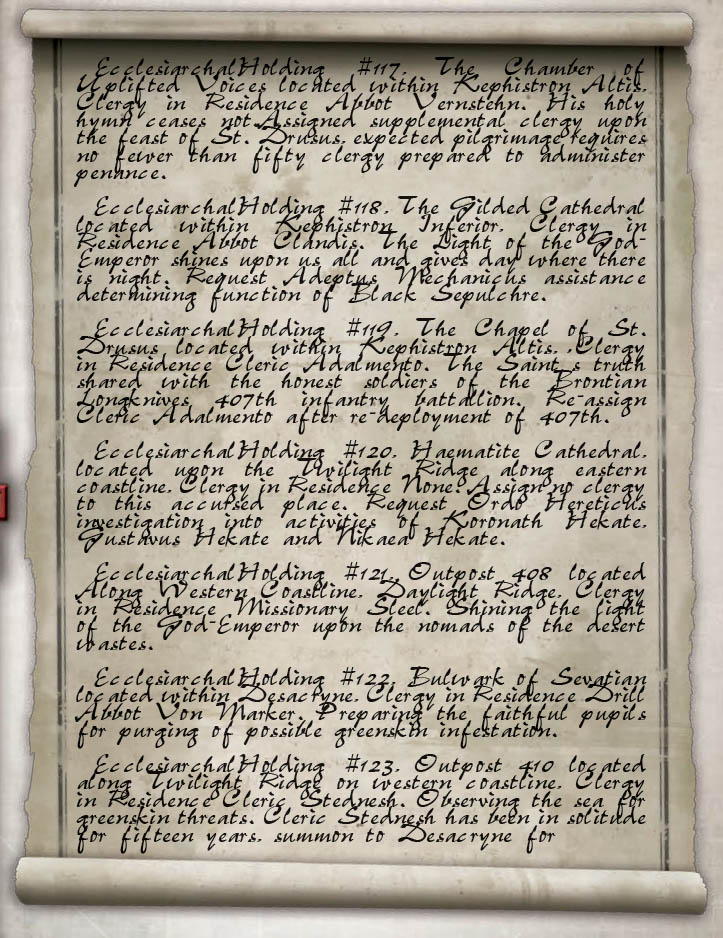 EcclesiarchalHolding #117. The Chamber of
Uplifted Voices located within Kephistron Altis.
Clergy in Residence Abbot Vernstehn. His holy
hymn ceases not.Assigned supplemental clergy upon
the feast of St. Drusus. expected pilgrimage requires
no fewer than fifty clergy prepared to administer
penance.
EcclesiarchalHolding #118. The Gilded Cathedral
located within Kephistron Inferior. Clergy in
Residence Abbot Clandis. The Light of the God-
Emperor shines upon us all and gives day where there
is night. Request Adeptus Mechanicus assistance
determining function of Black Sepulchre.
EcclesiarchalHolding #119. The Chapel of St.
Drusus located within Kephistron Altis. .Clergy
in Residence Cleric Adalmento. The Saint s truth
shared with the honest soldiers of the Brontian
Longknives 407th infantry battallion. Re-assign
Cleric Adalmento after re-deployment of 407th.
EcclesiarchalHolding #120. Haematite Cathedral.
located upon the Twilight Ridge along eastern
coastline. Clergy in Residence None. Assign no clergy
to this accursed place. Request Ordo Hereticus
investigation into activities of Koronath Hekate.
Gustavus Hekate and Nikaea Hekate.
EcclesiarchalHolding #121. Outpost 408 located
Along Western Coastline. Daylight Ridge. Clergy
in Residence Missionary Sleel. Shining the light
of the God-Emperor upon the nomads of the desert
wastes.
EcclesiarchalHolding #122. Bulwark of Sevatian
located within Desacryne. Clergy in Residence Drill
Abbot Von Marker. Preparing the faithful pupils
for purging of possible greenskin infestation.
EcclesiarchalHolding #123. Outpost 410 located
along Twilight Ridge on western coastline. Clergy
in Residence Cleric Stednesh. Observing the sea for
greenskin threats. Cleric Stednesh has been in solitude
for fifteen years. summon to Desacryne for